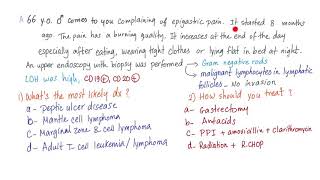 A 66 y.o. ♂ comes to you complaining of epigastric pain. It started 8 months
ago. The pain has a burning quality. It increases at the end of the day
especially after eating, wearing tight clothes or lying flat in bed at night.
An upper endoscopy with biopsy was performed
Gram negative rods
malignant lymphocytes in lymphatic
follicles - No invasion
LDH was high, CD19⊕, CD20⊕
1) What's the most likely dx?
a- Peptic ulcer disease
b- Mantle cell lymphoma
c- Marginal zone B cell lymphoma
d- Adult T-cell leukemia/lymphoma
2) How should you treat?
a- Gastrectomy
b- Antacids
c- PPI + amoxicillin + clarithromycin
d- Radiation + R.CHOP